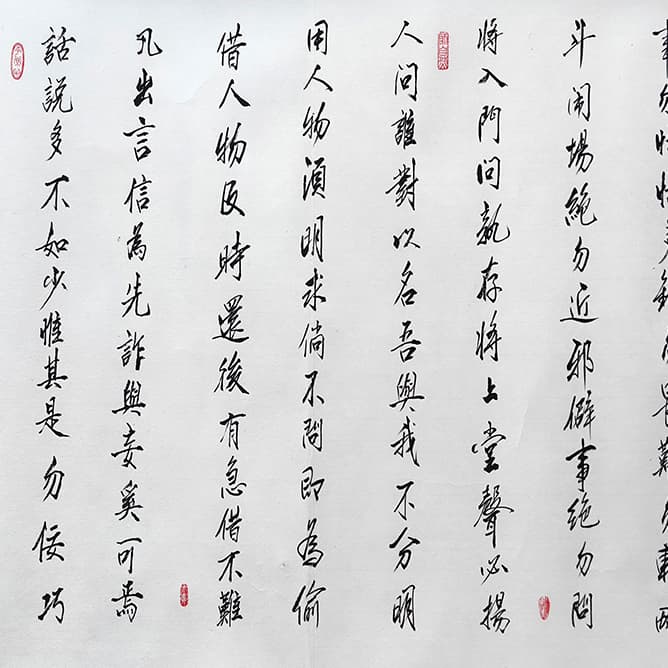 事勿忙忙多錯勿畏難勿輕略
斗鬧場絶勿近邪僻事绝勿問
將入門問孰存將上堂聲必揚
人問誰對以名吾與我不分明
用人物須明求倘不問即為偷
借人物及時還後有急借不難
凡出言信為先詐與妄奚可焉
話説多不如少惟其是勿佞巧